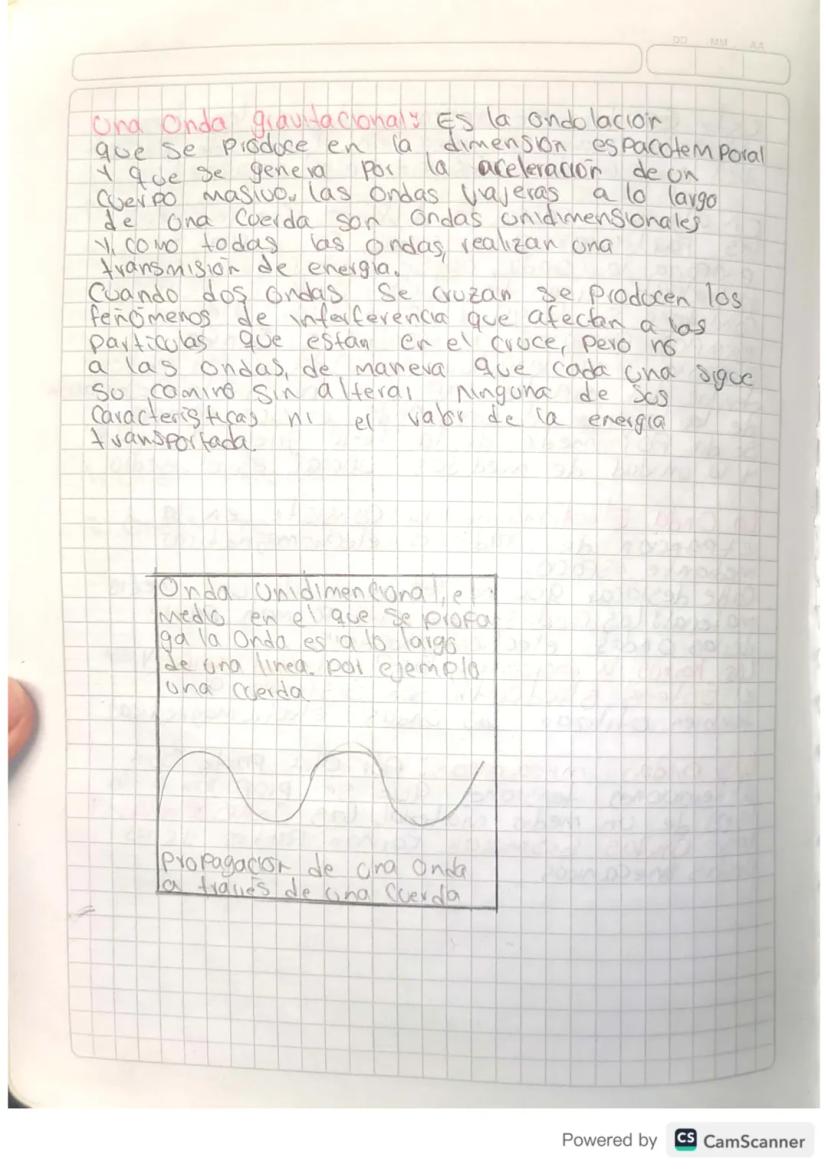 DD MM AA
Una Onda gravitacional: Es la ondolación
que se produce en la dimensión espacotemporal
y que se genera por la aceleración de un
cuerpo masivo. las ondas viajeras a lo largo
de una cuerda son ondas unidimensionales
y, como todas las ondas, realizan una
transmisión de energía.
Cuando dos ondas se cruzan se producen los
fenómenos de interferencia que afectan a las
partículas que están en el cruce, pero no
a las ondas, de manera que cada una sigue
su camino sin alterar ninguna de sus
características ni el valor de la energía
transportada.
Onda unidimencional, el
medio en el que se propa
ga la onda es a lo largo
de una linea. por ejemplo
una cuerda
Propagación de una onda
a través de una cuerda
Powered by CS CamScanner